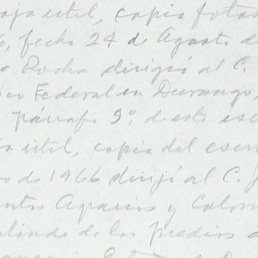 oja útil, copia fotos
, fecha 24 de Agosto de
a Rocha dirigió al C.
ico Federal en Durango,
párrafo 9º de este es
a útil, copia del escri
o de 1966 dirijí al C. J
ntos Agrarios y Colon
linde de los predios